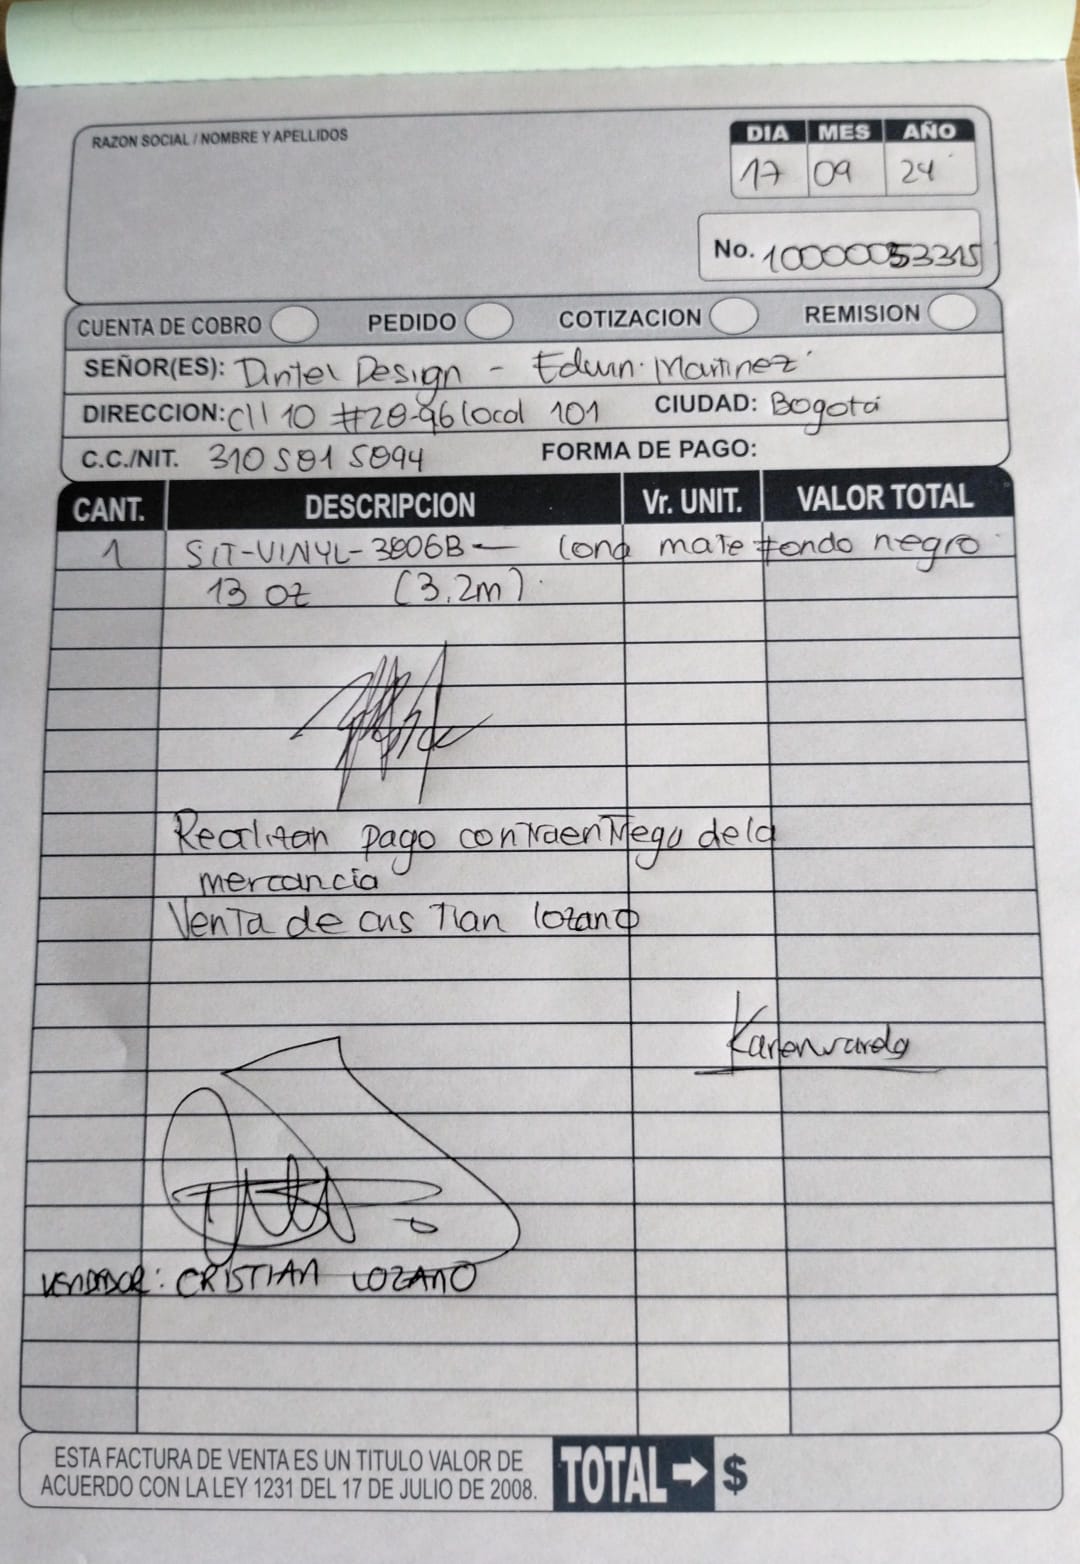 RAZON SOCIAL / NOMBRE Y APELLIDOS
DIA MES AÑO
17 09 24
No. 10000053315
CUENTA DE COBRO PEDIDO COTIZACION REMISION
SEÑOR(ES): Dintel Design - Edwin Martinez
DIRECCION: Cll 10 #28-96 local 101 CIUDAD: Bogotá
C.C./NIT. 310 581 5894 FORMA DE PAGO:
CANT. DESCRIPCION Vr. UNIT. VALOR TOTAL
1 SIT-VINYL-3806B - lona mate fondo negro
13 oz (3.2m)
Realizan pago contraentrega de la
mercancia
Venta de cris Tian lozano
VENDEDOR: CRISTIAN LOZANO
ESTA FACTURA DE VENTA ES UN TITULO VALOR DE
ACUERDO CON LA LEY 1231 DEL 17 DE JULIO DE 2008.
TOTAL → $